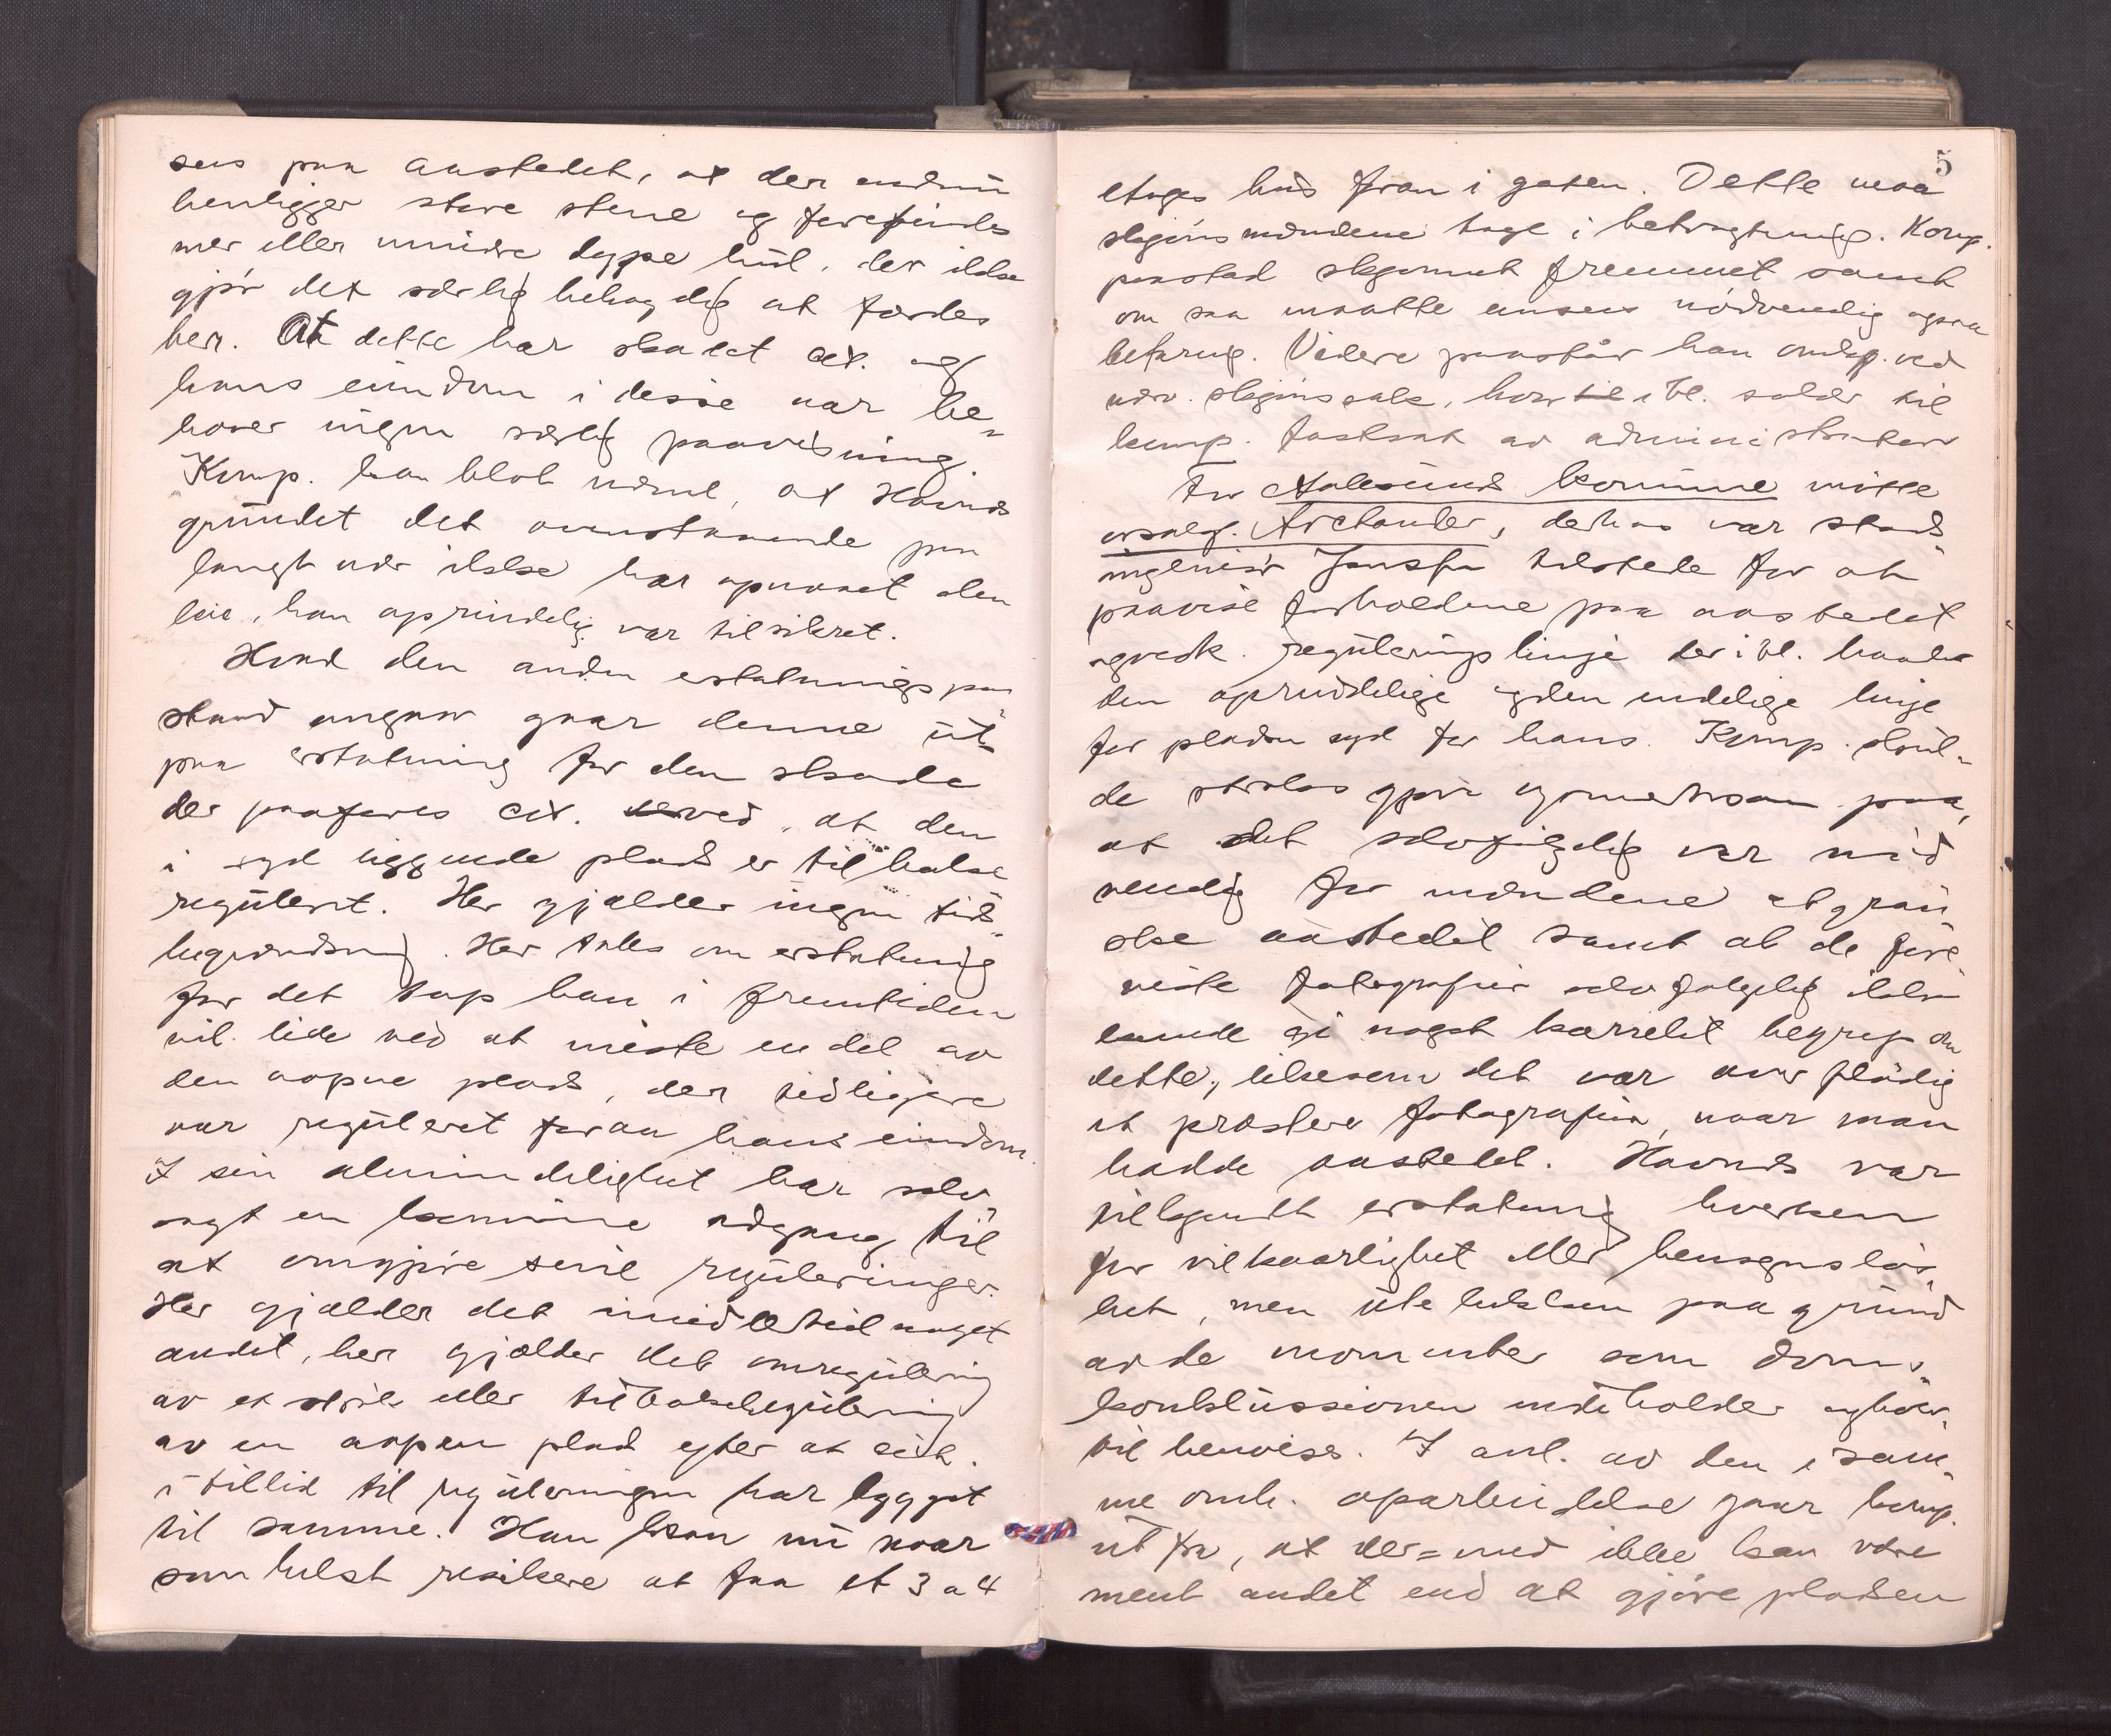 sees paa aastedet, at der endnu
henligger store stene og forefindes
mer eller mindre dype hul, der ikke
gjør det særlig behagelig at færdes
her. At dette har skadet cit. og
hans eiendom i disse aar be-
høver ingen særlig paavisning.
Komp. kan blot nævne, at Havnds
grundet det ovenstaaende paa
langt nær ikke har opnaaet den
leie, han oprindelig var tilsikret.
Hvad den anden erstatningspaa-
stand angaar gaar denne ut
paa erstatning for den skade
der paaføres cit. ved, at den
i syd liggende plads er tilbake
regulert. Her gjælder ingen tids-
begrændsning. Her tales om erstatning
for det tap han i fremtiden
vil lide ved at miste en del av
den aapne plads, der tidligere
var reguleret foran hans eiendom.
I sin almindelighet har selv-
sagt en kommune adgang til
at omgjøre sine reguleringer.
Her gjælder det imidlertid noget
andet, her gjælder det omregulering
av et strøk eller tilbakeregulering
av en aapen plads efter at cit.
i tillid til reguleringen har bygget
til samme. Han kan nu naar
som helst risikere at faa et 3 a 4
5
etages hus foran i gaten. Dette maa
skjønsmændene tage i betragtning. Komp.
paastod skjønnet fremmet samt
om saa maatte ansees nødvendig ogsaa
befaring. Videre paastår han omkp. ved
nærv. skjønssak, herunder salær til
komp. fastsat av administrator
For Aalesunds kommune møtte
orsakf. Archander, derhos var stads-
ingeniør Jensen tilstede for at
paavise forholdene paa aastedet
og vedk. reguleringslinje der i bl. baade
den oprindelige og den endelige linje
for pladsen syd for hans. Komp. skul-
de straks gjøre opmerksom paa,
at det selvfølgelig var nød-
vendig for mændene at gran-
ske aastedet samt at de fore-
viste fotografier selvfølgelig ikke
kunde gi noget korrekt begrep om
dette, likesom det var overflødig
at præstere fotografier, naar man
hadde aastedet. Havnds var
tilkjendt erstatning hverken
for vilkaarlighet eller hensynsløs-
het, men utelukkende paa grund
av de momenter som doms-
konklussionen indeholder og hvor-
til henvises. I anl. av den i sam-
me omh. oparbeidelse gaar komp.
ut fra, at der=med ikke kan være
ment andet end at gjøre pladsen